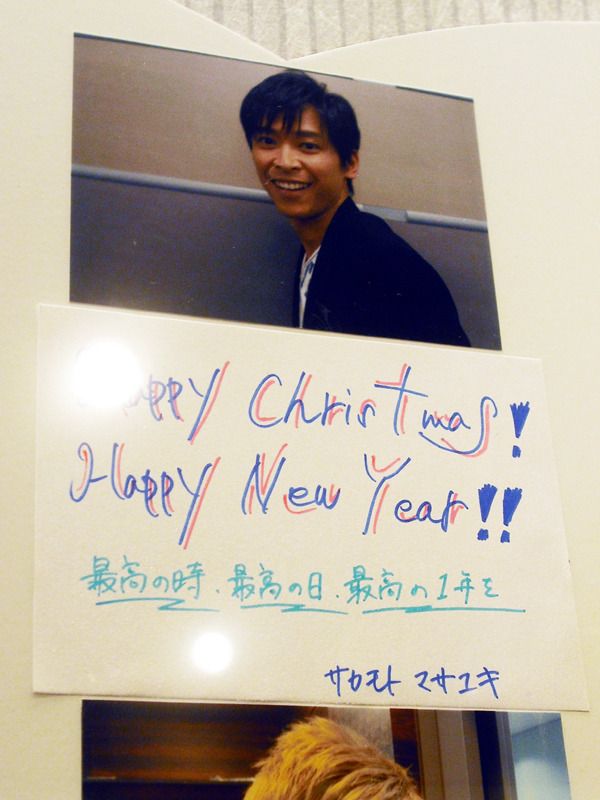 Happy Christmas!
Happy New Year!!
最高の時、最高の日、最高の1年を
サカモト マサユキ